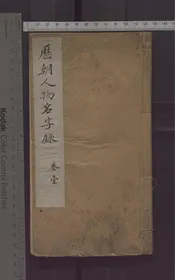 歷朝人物名字錄
卷壹
Kodak
Color Control Patches